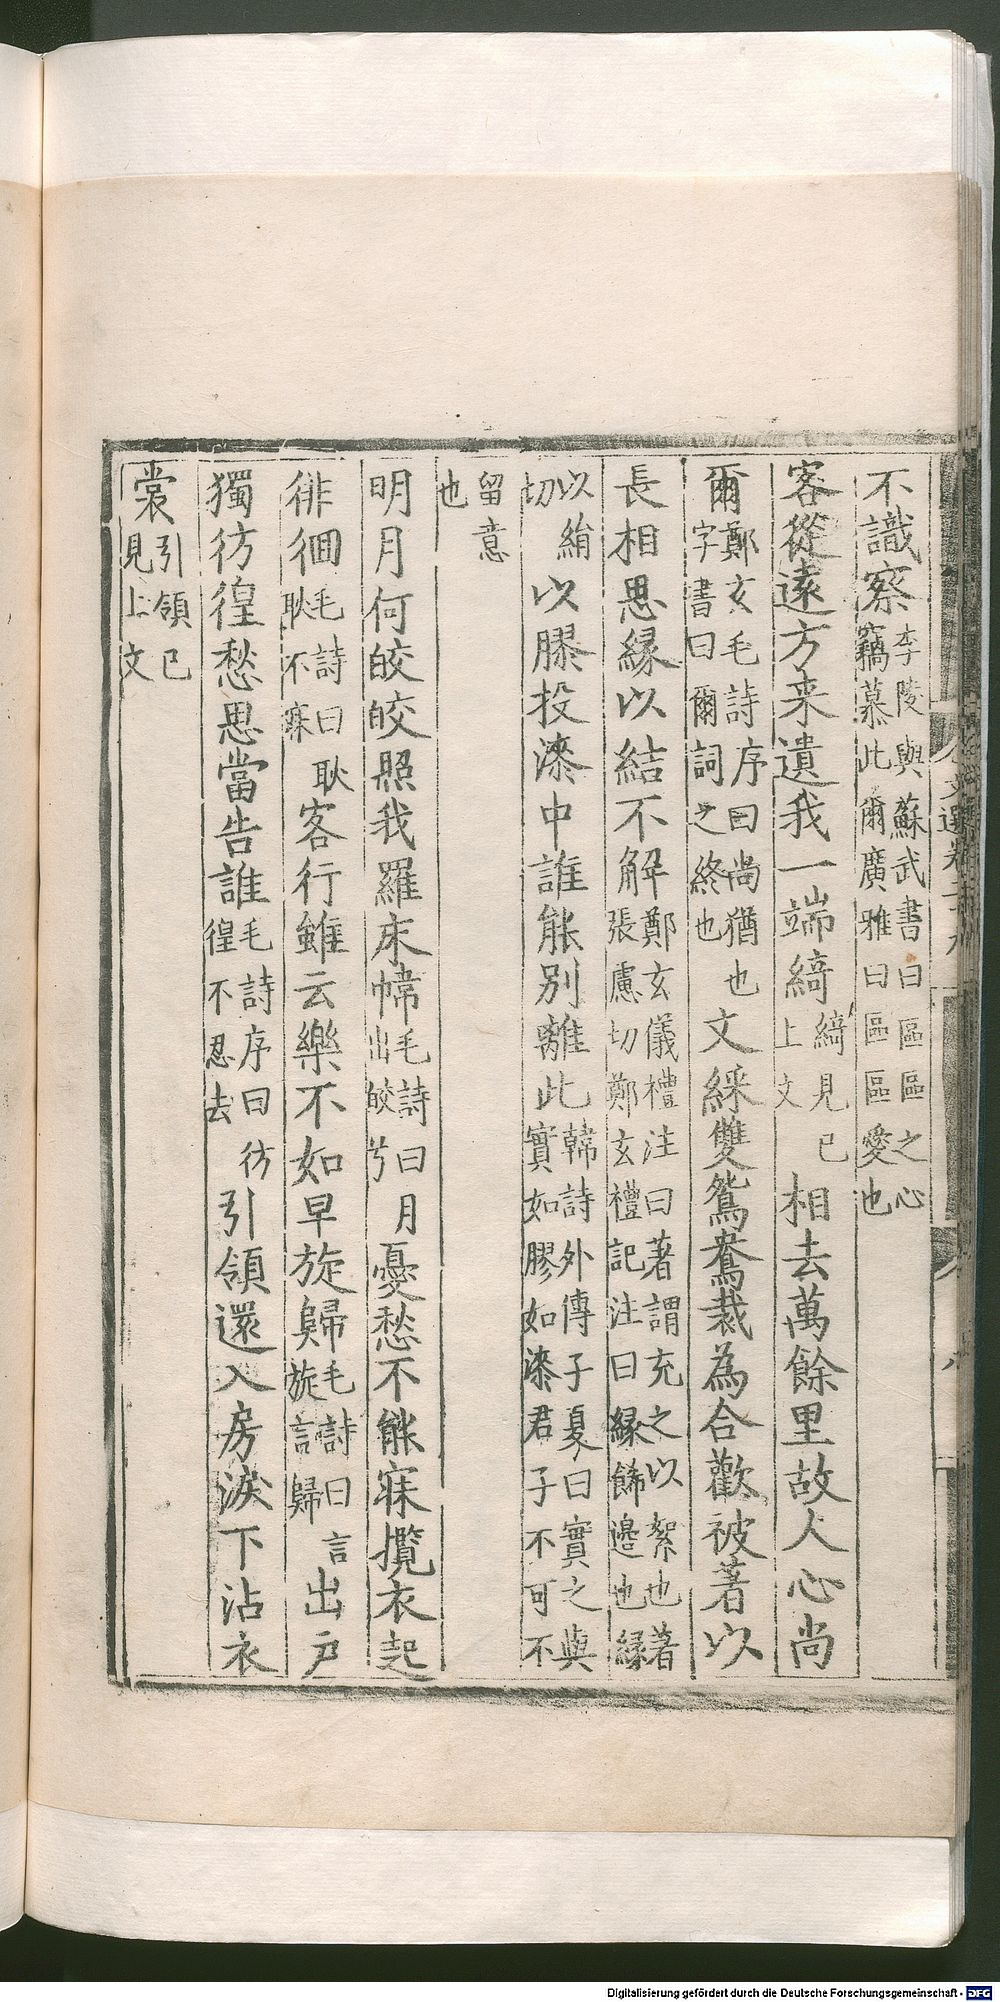 不識察李陵與蘇武書曰區區之心竊慕此爾廣雅曰區區愛也
客從遠方来遺我一端綺綺見已上文相去萬餘里故人心尚
爾鄭玄毛詩序曰尚猶也字書曰爾詞之終也文綵雙鴛鴦裁為合歡被著以
長相思緣以結不解鄭玄儀禮注曰著謂充之以絮也著張慮切鄭玄禮記注曰緣飾邊也緣
以絹切以膠投漆中誰能別離此韓詩外傳子夏曰實之與實如膠如漆君子不可不
留意也
明月何皎皎照我羅床幃毛詩曰月出皎兮憂愁不能寐攬衣起
徘徊毛詩曰耿耿不寐客行雖云樂不如早旋歸毛詩曰言旋言歸出戶
獨彷徨愁思當告誰毛詩序曰彷徨不忍去引領還入房淚下沾衣
裳引領已見上文
文選卷二十九
八
Digitalisierung gefördert durch die Deutsche Forschungsgemeinschaft - DFG